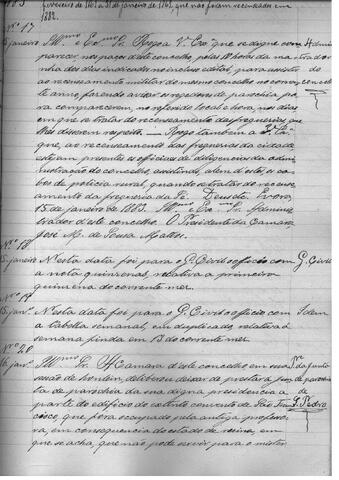 fevereiro de 1862 a 31 de janeiro de 1863, que não foram recenseados em
1882.
Nº 17
janeiro Illmo e Exmo Sr. Rogo a V. Exa que se digne com Admi
parecer nos paços d'este concelho, pelas 10 horas da ma
nha dos dias indicados no incluso edital, para assistir
ao recenseamento militar do mesmo concelho no corrente
anno, fazendo avisar os regedores de parochia pa
ra comparecerem, no referido local e hora, nos dias
em que se trata do recenseamento das freguezias que
lhes disserem respeito. — Rogo tambem a V. Exa
que, ao recenseamento das freguezias da cidade
estejam presentes os officiaes de diligencias da admi
nistração do concelho, assistindo, alem d'estes, os ca
bos de policia rural, quando se tratar do recense
amento da freguezia da Sé. Deus etc. Evora
15 de janeiro de 1883. Illmo e Exmo Sr. Adminis
trador d'este concelho. O Presidente da Camara
José M. de Sousa Mattos.
Nº 18
15 janeiro Nesta data foi para o G. Civil officio com G. Civil
a nota quinzenal, relativa á primeira
quinzena do corrente mez.
Nº 19
15 janº Nesta data foi para o G. Civil officio com Idem
a tabella semanal, em duplicado, relativa á
semana finda em 13 do corrente mez.
Nº 20
16 janº Illmo Sr. A Camara d'este concelho em sua
sessão de hontem, deliberou deixar de prestar á jun
ta de parochia da sua digna presidencia a
parte do edificio do extincto convento de São Fran S. Pedro
cisco, que fora occupado pela antiga professo
ra, em consequencia do estado de ruina em
que se acha, que não pode servir para o mister